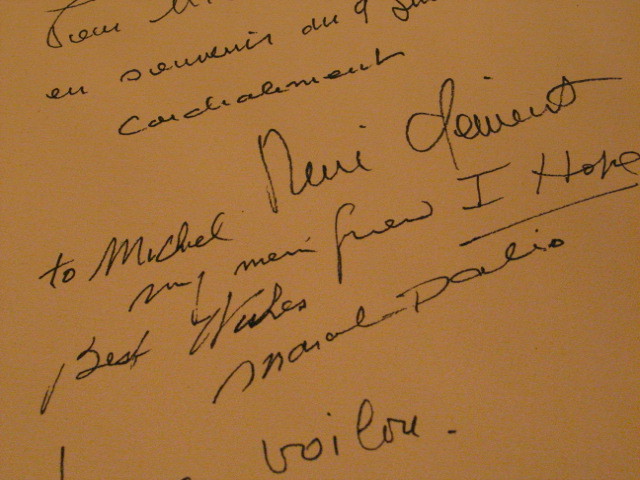 Pour M
en souvenir du 9 Jui
Cordialement
René Clément
to Michel
my new friend I Hope
Best Wishes
Marcel Dalio
voilou.